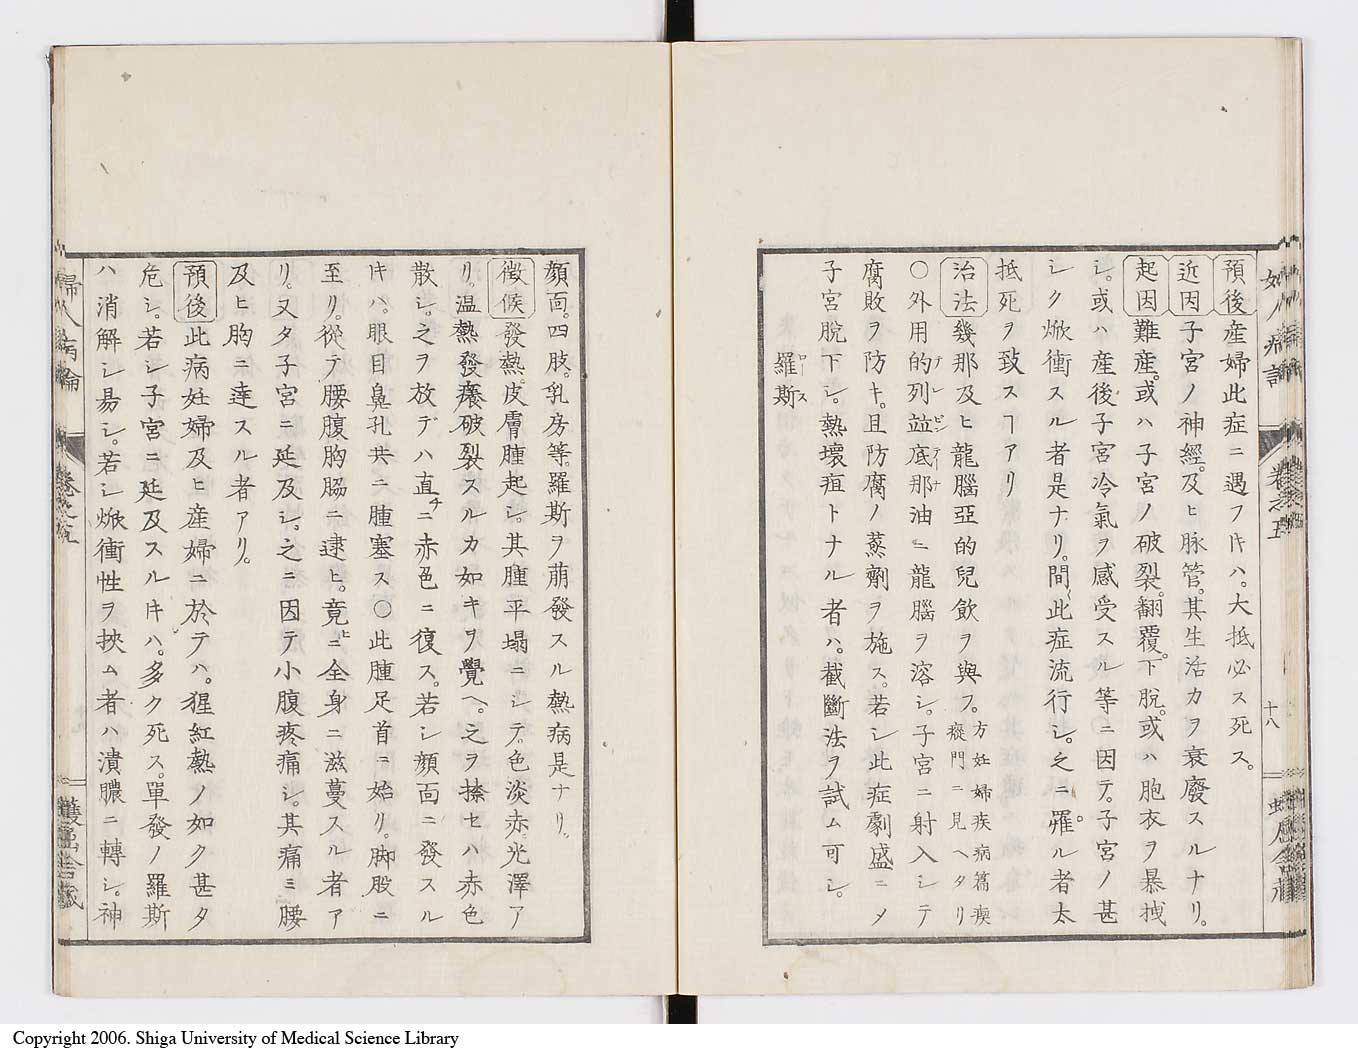 預後産婦此症ニ遇フ𪜈ハ。大抵必ス死ス。
近因子宮ノ神經。及ヒ脉管。其生活力ヲ衰廢スルナリ。
起因難産。或ハ子宮ノ破裂。翻覆。下脱。或ハ胞衣ヲ暴拽
シ。或ハ産後子宮冷氣ヲ感受スル等ニ因テ。子宮ノ甚
シク焮衝スル者是ナリ。間〻此症流行シ。之ニ罹ル者太
抵死ヲ致スヿアリ
治法幾那及ヒ龍腦亞的兒飲ヲ與フ。方妊婦疾病篇瘈
瘲門ニ見ヘタリ
〇外用的列並底那油ニ龍腦ヲ溶シ。子宮ニ射入シ。テ
テレビンテイーナ
腐敗ヲ防キ。且防腐ノ蒸劑ヲ施ス。若シ此症劇盛ニメ
子宮脱下シ。熱壞疽トナル者ハ。截斷法ヲ試ム可シ。
羅斯
ロース
顔面。四肢。乳房等。羅斯ヲ萠發スル熱病是ナリ。
徴候發熱。皮膚腫起シ。其腫平塌ニシテ。色淡赤。光澤ア
リ。温熱發癢破裂スルカ如キヲ覺ヘ。之ヲ搽セハ赤色
散シ。之ヲ放テハ直チニ赤色ニ復ス。若シ顔面ニ發スル
𪜈ハ。眼目鼻孔共ニ腫塞ス〇此腫足首ニ始リ。脚股ニ
至リ。從テ腰腹胸脇ニ逮ヒ。竟ニ全身ニ滋蔓スル者ア
リ。又タ子宮ニ延及シ。之ニ因テ小腹疼痛シ。其痛ミ腰
及ヒ胸ニ達スル者アリ。
預後此病妊婦及ヒ産婦ニ於テハ。猩紅熱ノ如ク甚タ
危シ。若シ子宮ニ延及スル𪜈ハ。多ク死ス。單發ノ羅斯
ハ消解シ易シ。若シ焮衝性ヲ挾ム者ハ潰膿ニ轉シ。神
婦人病論
卷之五
十八
Copyright 2006. Shiga University of Medical Science Library